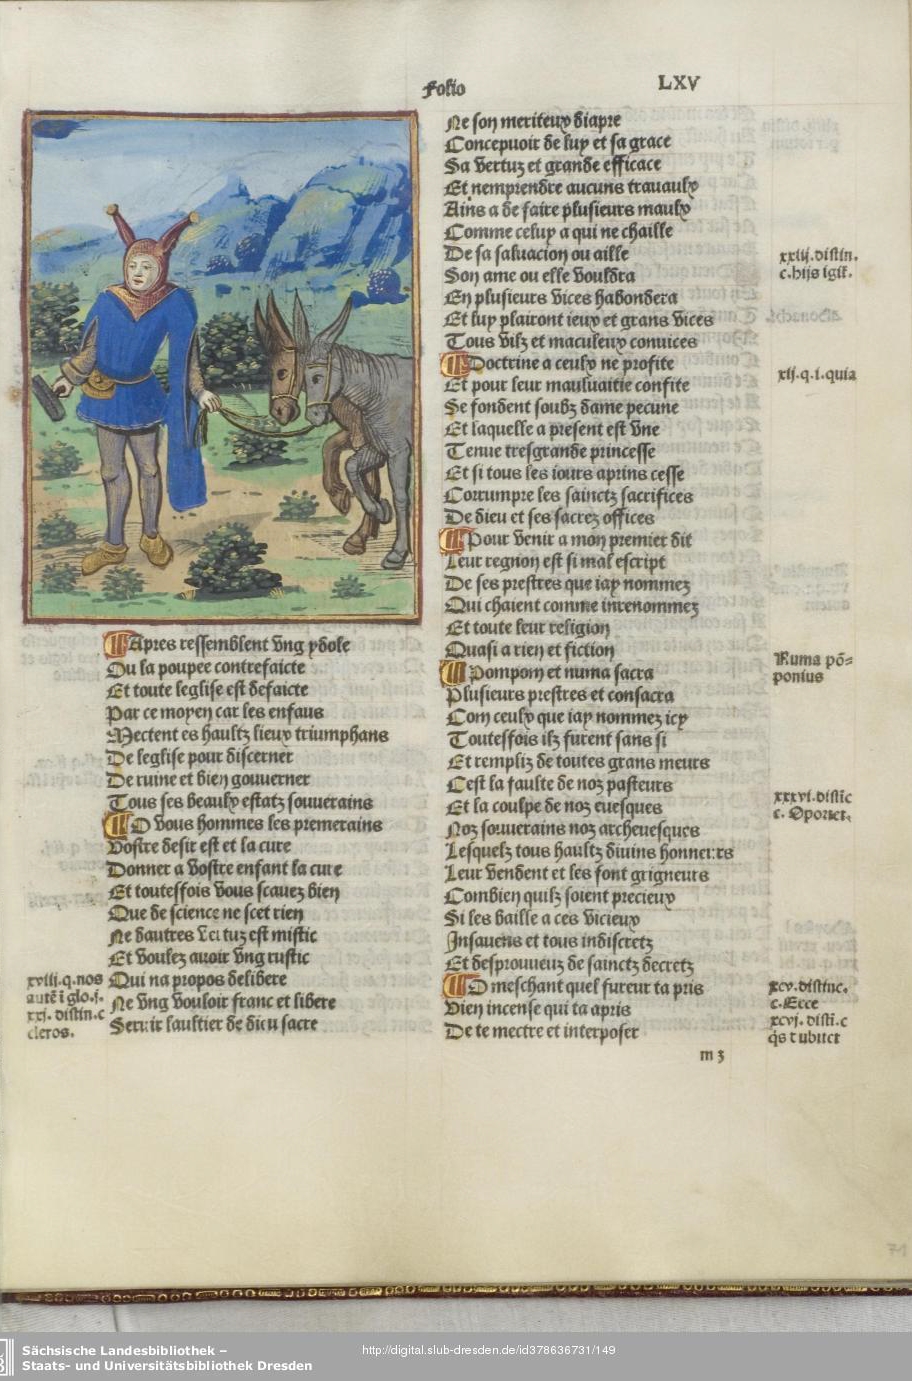 Folio LXV
Apres ressemblent vng ydole
Ou la poupee contrefaicte
Et toute leglise est defaicte
Par ce moyen car les enfaus
Mectent es haultz lieux triumphans
De leglise pour discerner
De ruine et bien gouuerner
Tous ses beaulx estatz souuerains
O vous hommes les premerains
Vostre desir est et la cure
Donner a vostre enfant la cure
Et toutesfois vous scauez bien
Que de science ne scet rien
Ne dautres vertuz est mistic
Et voulez auoir vng rustic
Qui na propos delibere
Ne vng vouloir franc et libere
Seruir laultier de dieu sacre
xviii.q.nos
autē ī glo.j.
xxj. distin.c
cleros.
Ne son meriteux diapre
Conceuoir de luy et sa grace
Sa vertuz et grande efficace
Et nemprendre aucuns trauaulx
Ains a de faire plusieurs maulx
Comme celuy a qui ne chaille
De sa saluacion ou aille
Son ame ou elle vouldra
En plusieurs vices habondera
Et luy plairont ieux et grans vices
Tous vilz et maculeux conuices
Doctrine a ceulx ne profite
Et pour leur mauluaitie confite
Se fondent soubz dame pecune
Et laquelle a present est vne
Tenue tresgrande princesse
Et si tous les iours aprins cesse
Corrumpre les sainctz sacrifices
De dieu et ses sacrez offices
Pour venir a mon premier dit
Leur region est si mal escript
De ses prestres que iay nommez
Qui chaient comme inrenommez
Et toute leur religion
Quasi a rien et fiction
Pompon et numa sacra
Plusieurs prestres et consacra
Com ceulx que iay nommez icy
Toutesfois ilz furent sans si
Et rempliz de toutes grans meurs
Cest la faulte de noz pasteurs
Et la coulpe de noz euesques
Noz souuerains noz archeuesques
Lesquelz tous haultz diuins honneurs
Leur vendent et les font grigneurs
Combien quilz soient precieux
Si les baille a ces vicieux
Insauens et tous indiscretz
Et desprouueuz de sainctz decretz
O meschant quel fureur ta pris
Vien incense qui ta apris
De te mectre et interposer
m 3
xxiij.distin.
c.hijs igit.
xij.q.i.quia
Numa pō=
ponius
xxxvi.distīc
c. Oportet.
xcv.distinc.
c.Ecce
xcvj. distī.c
q̄s t ubiicet
71
Sächsische Landesbibliothek –
Staats- und Universitätsbibliothek Dresden
http://digital.slub-dresden.de/id378636731/149